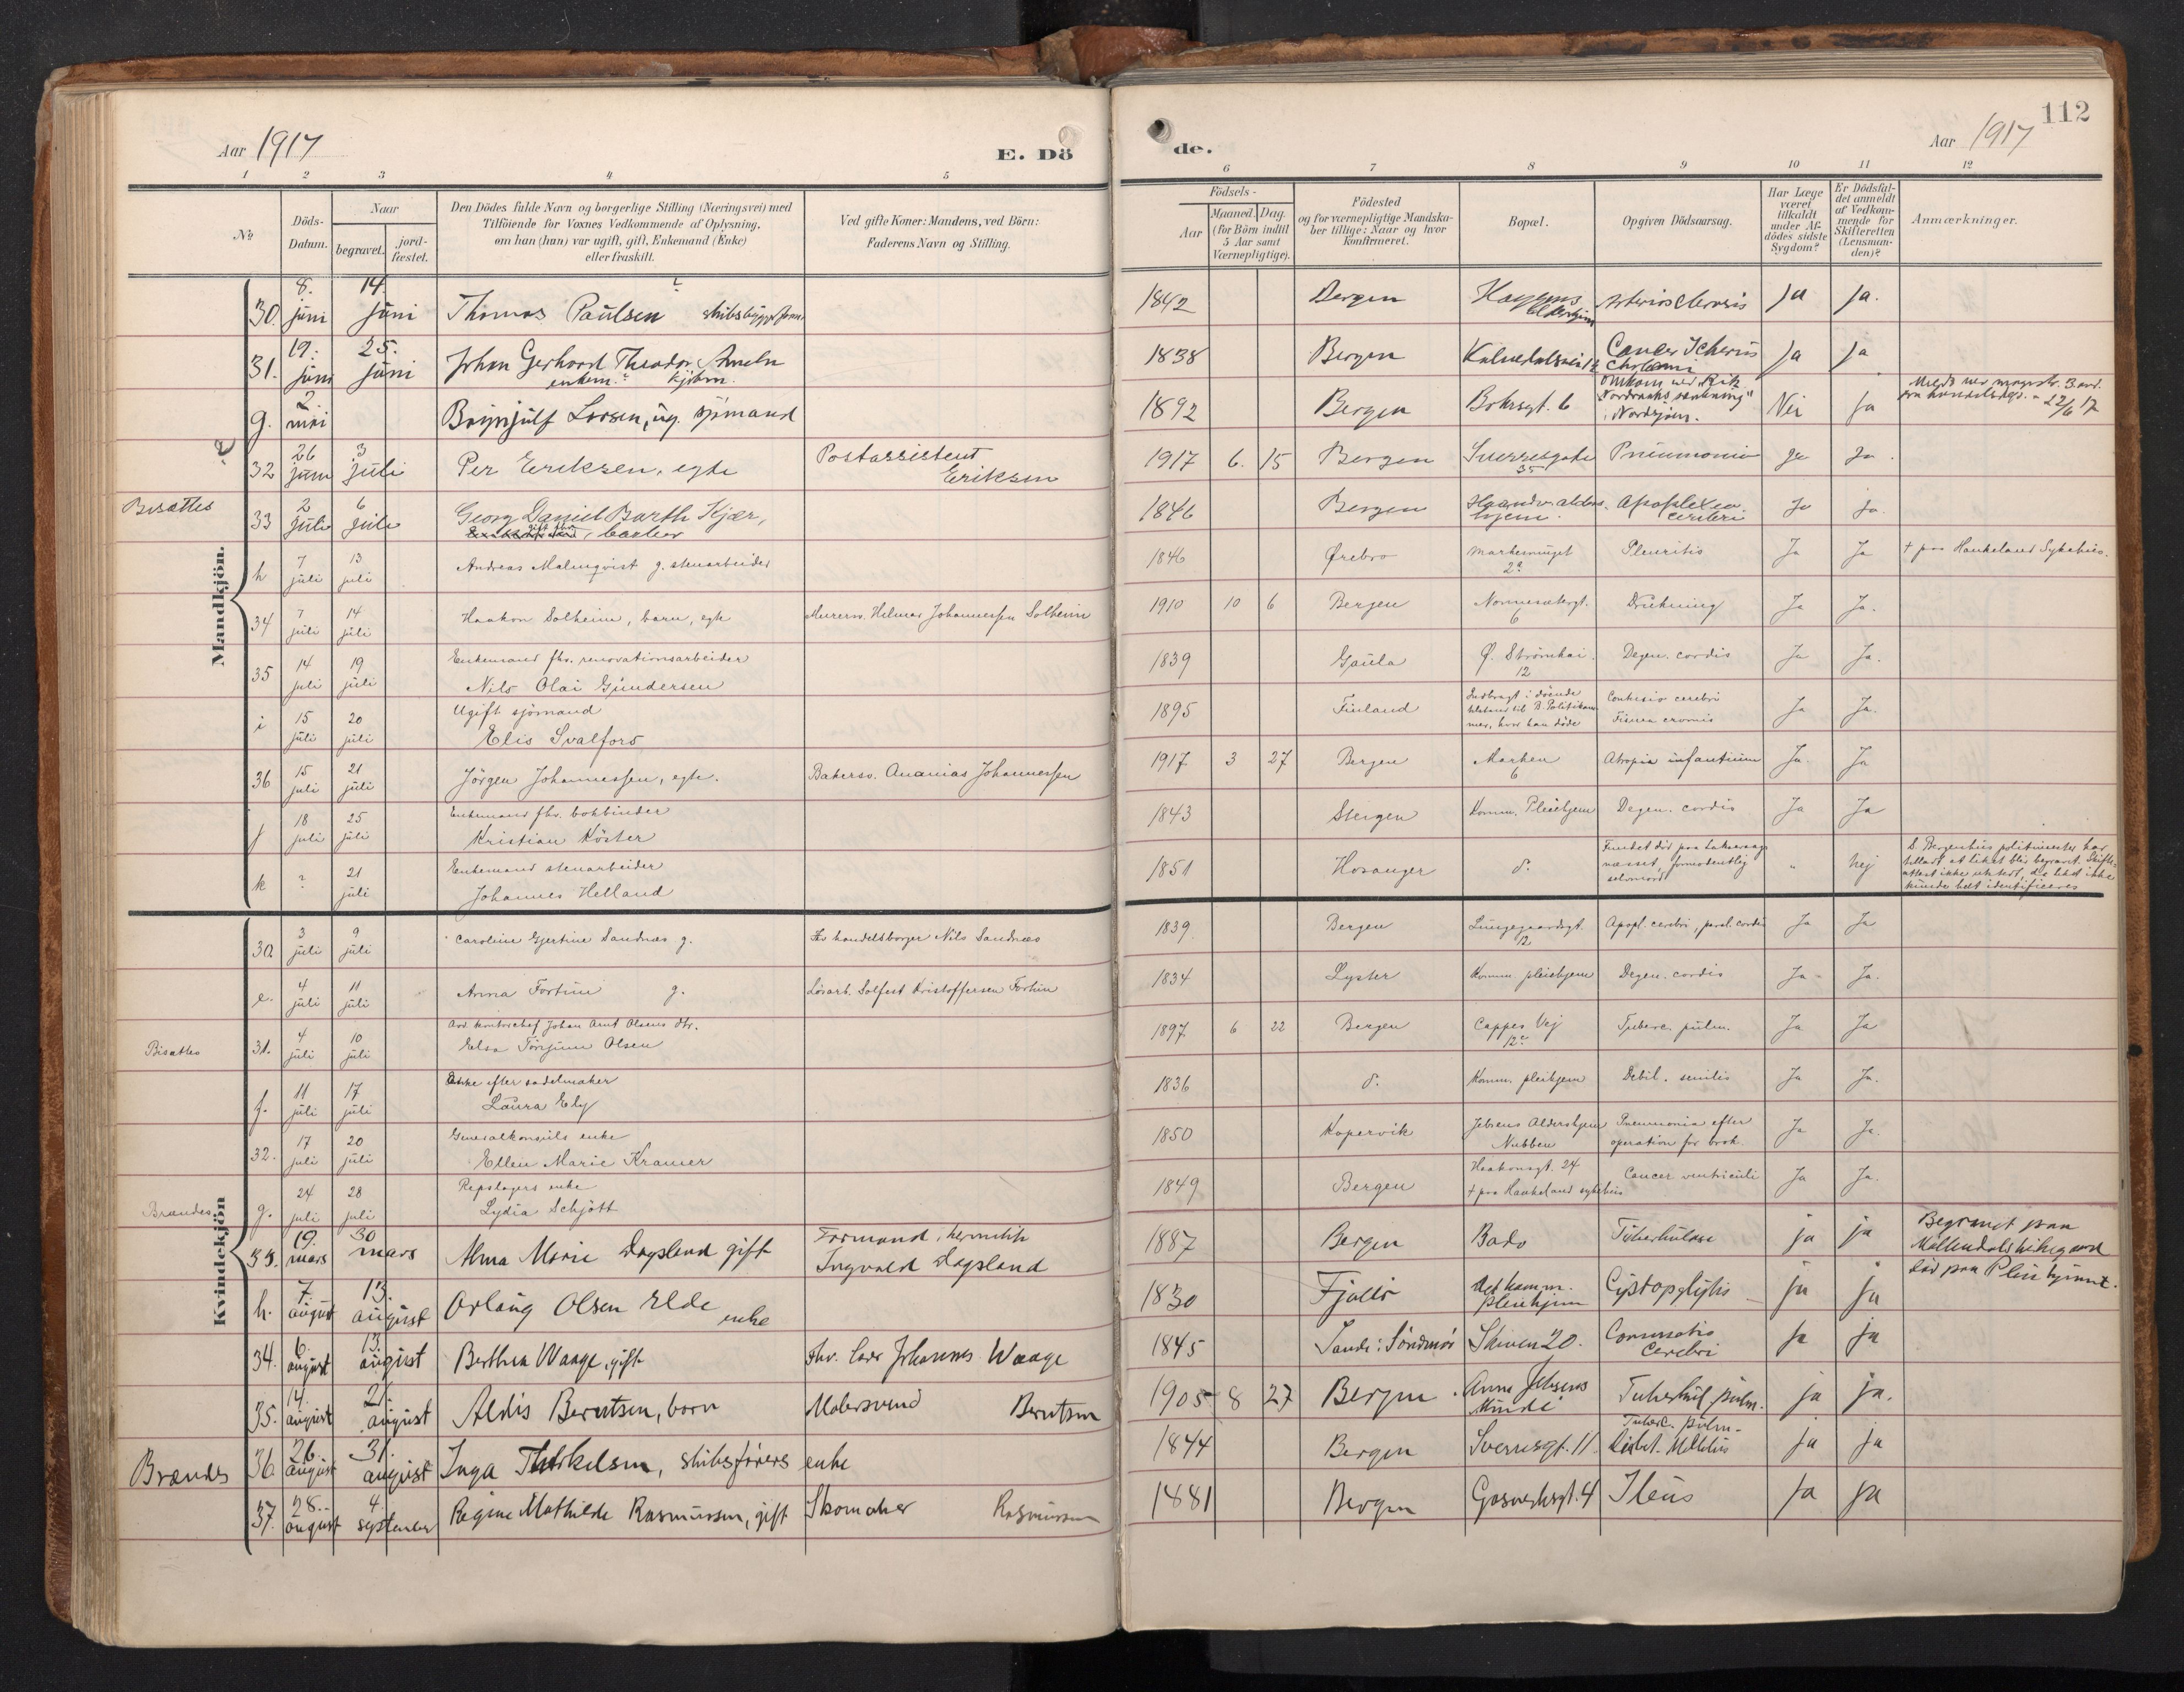 112
Aar 1917
E. Dö
de.
Aar 1917
1 2 3 4 5
6 7 8 9 10 11 12
№
Döds-Datum.
Naar
begravet.
jord-fæstet.
Den Dödes fulde Navn og borgerlige Stilling (Næringsvei) med
Tilföiende for Voxnes Vedkommende af Oplysning,
om han (hun) var ugift, gift, Enkemand (Enke)
eller fraskilt.
Ved gifte Koner: Mandens, ved Börn:
Faderens Navn og Stilling.
Födsels-
Aar
Maaned. Dag.
(for Börn indtil
5 Aar samt
Værnepligtige).
Födested
og for værnepligtige Mandska-
ber tillige: Naar og hvor
konfirmeret.
Bopæl.
Opgiven Dödsaarsag.
Har Læge
været
tilkaldt
under Af-
dödes sidste
Sygdom?
Er Dödsfal-
det anmeldt
af Vedkom-
mende for
Skifteretten
(Lensman-
den)?
Anmærkninger.
Mandkjön.
30. 8. juni 14. juni Thomas Paulsen 1842 Bergen Arteriosclerosis ja ja.
31. 19. juni 25. juni Johan Gerhard Theodor Ameln enkem.? kjøbm. 1838 Bergen Kalvedalsvei Cancer ja ja
g. 2 mai Brynjulf Larsen, ug. sjømand 1892 Bergen Bohrsgt. 6 Omkom ved "Nordraaks senkning" i Nordsjøen. Nei ja 22/6 17
32 26 juni 3 juli Per Eriksen, egte Postassistent Eriksen 1917 6. 15 Bergen Sverresgate 35 Pneumonia ja ja.
Bisættes 33 2 juli 6 juli Georg Daniel Barth Kjær, barber 1846 Bergen Haandv. alders. hjem. Apoplexia cerebri ja ja.
h 7 juli 13 juli Andreas Malmqvist g. stenarbeider 1846 Ørebro Pleuritis Ja Ja + paa Haukeland Sykehus.
34 7 juli 14 juli Haakon Solheim, barn, egte Murersv. Helmer Johannessen Solheim 1910 10 6 Bergen Nonnesetergt. 6 Drukning Ja Ja.
35 14 juli 19 juli Enkemand fhv. renovationsarbeider
Nils Olai Gundersen 1839 Gaula Ø. Strømkai. 12 Degen. cordis Ja Ja.
i 15 juli 20 juli Ugift sjømand
Elis Svalfors 1895 Finland Indbragt i døende tilstand til B. Politikammer, hvor han døde Contusio cerebri Fisura cranis Ja Ja.
36 15 juli 21 juli Jörgen Johannessen, egte. Bakersv. Ananias Johannessen 1917 3 27 Bergen Marken 6 Atropia infantium Ja. Ja
j 18 juli 25 juli Enkemand fhv. bokbinder
Kristian Köster 1843 Steigen Komm. Pleiehjem Degen. cordis Ja Ja
k ? 21 juli Enkemand stenarbeider
Johannes Helland 1851 Hosanger d. Fundet död paa Laksevaag næsset, formodentlig selvmord " Nej S. Bergenhus politimester har tillatt at liket blir begravet. Skifte-attest ikke utstedt, da liket ikke kunde helt identificeres
Kvindekjön
30 3 juli 9 juli Caroline Gjertine Sandnæs g. Fhv handelsborger Nils Sandnæs 1839 Bergen Lungegaardsgt. 12 Apopl. cerebri, paral. cordis Ja Ja
e. 4 juli 11 juli Anna Fortun g. Lösarb. Solfest Kristoffersen Fortun 1834 Lyster Komm. pleiehjem Degen. cordis Ja Ja.
Bisættes 31. 4 juli 10 juli Avd. kontorchef Johan Arnt Olsens dtr.
Elsa Torjune Olsen 1897 6 22 Bergen Cappes Vej 12c Tuberc. pulm. Ja Ja
f. 11 juli 17 juli Enke efter sadelmaker
Laura Ely 1836 d. Komm. pleiehjem Debil. senilis Ja Ja.
32. 17 juli 20 juli Generalkonsuls enke
Ellen Marie Kramer 1850 Kopervik Jebsens Aldershjem Nubben Pneumonia efter operation for brok. Ja Ja.
Brændes g. 24 juli 28 juli Repslagers enke
Lydia Schjött 1849 Bergen Haakonsgt. 24 + paa Haukeland sykehus Cancer ventriculi Ja Ja.
33. 19. mars 30 mars Alma Marie Dagsland gift Formand, hermetik Ingvald Dagsland 1887 Bergen Bado Tuberkulose ja ja Begravet paa Møllendals kirkegaard
h. 7. august 13. august Orlaug Olsen Elde enke 1830 Fjaler Det komm. pleiehjem ja ja Död paa Pleiehjemmet.
34. 6. august 13. august Berthea Waage, gift fhv. Johannes Waage 1845 Sande i Söndmör Skiven 20. cerebri ja ja
35. 14. august 21. august Aldis Berntsen, barn Malersvend Berntsen 1905 8 27 Bergen Anna Jebsens Minde Tuberkul. pulm. ja ja.
Brændes 36 26. august 31. august Inga Therkelsen, skibsførers enke 1844 Bergen Sverresgt. 11. Tuberc. pulm. Diabet. Mellitus ja ja
37. 28. august 4. september Regine Mathilde Rasmussen, gift Skomaker Rasmussen 1881 Bergen Gasverksgt. 4 Ileus ja ja